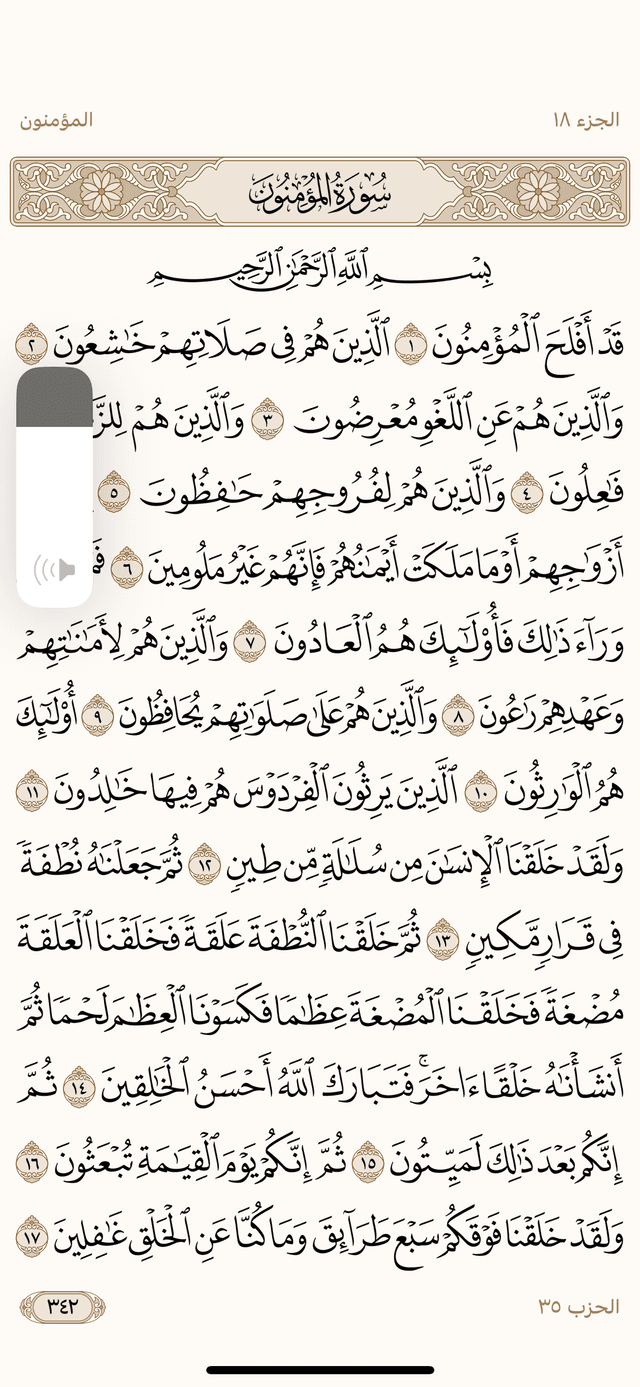 المؤمنون
الجزء ١٨
سُورَةُ المُؤۡمِنُونَ
بِسۡمِ ٱللَّهِ ٱلرَّحۡمَٰنِ ٱلرَّحِيمِ
قَدۡ أَفۡلَحَ ٱلۡمُؤۡمِنُونَ ١ ٱلَّذِينَ هُمۡ فِي صَلَاتِهِمۡ خَٰشِعُونَ ٢
وَٱلَّذِينَ هُمۡ عَنِ ٱللَّغۡوِ مُعۡرِضُونَ ٣ وَٱلَّذِينَ هُمۡ
فَٰعِلُونَ ٤ وَٱلَّذِينَ هُمۡ لِفُرُوجِهِمۡ حَٰفِظُونَ ٥
أَزۡوَٰجِهِمۡ أَوۡ مَا مَلَكَتۡ أَيۡمَٰنُهُمۡ فَإِنَّهُمۡ غَيۡرُ مَلُومِينَ ٦
وَرَآءَ ذَٰلِكَ فَأُوْلَٰٓئِكَ هُمُ ٱلۡعَادُونَ ٧ وَٱلَّذِينَ هُمۡ لِأَمَٰنَٰتِهِمۡ
وَعَهۡدِهِمۡ رَٰعُونَ ٨ وَٱلَّذِينَ هُمۡ عَلَىٰ صَلَوَٰتِهِمۡ يُحَافِظُونَ ٩ أُوْلَٰٓئِكَ
هُمُ ٱلۡوَٰرِثُونَ ١٠ ٱلَّذِينَ يَرِثُونَ ٱلۡفِرۡدَوۡسَ هُمۡ فِيهَا خَٰلِدُونَ ١١
وَلَقَدۡ خَلَقۡنَا ٱلۡإِنسَٰنَ مِن سُلَٰلَةٖ مِّن طِينٖ ١٢ ثُمَّ جَعَلۡنَٰهُ نُطۡفَةٗ
فِي قَرَارٖ مَّكِينٖ ١٣ ثُمَّ خَلَقۡنَا ٱلنُّطۡفَةَ عَلَقَةٗ فَخَلَقۡنَا ٱلۡعَلَقَةَ
مُضۡغَةٗ فَخَلَقۡنَا ٱلۡمُضۡغَةَ عِظَٰمٗا فَكَسَوۡنَا ٱلۡعِظَٰمَ لَحۡمٗا ثُمَّ
أَنشَأۡنَٰهُ خَلۡقًا ءَاخَرَۚ فَتَبَارَكَ ٱللَّهُ أَحۡسَنُ ٱلۡخَٰلِقِينَ ١٤ ثُمَّ
إِنَّكُم بَعۡدَ ذَٰلِكَ لَمَيِّتُونَ ١٥ ثُمَّ إِنَّكُمۡ يَوۡمَ ٱلۡقِيَٰمَةِ تُبۡعَثُونَ ١٦
وَلَقَدۡ خَلَقۡنَا فَوۡقَكُمۡ سَبۡعَ طَرَآئِقَ وَمَا كُنَّا عَنِ ٱلۡخَلۡقِ غَٰفِلِينَ ١٧
الحزب ٣٥
٣٤٢